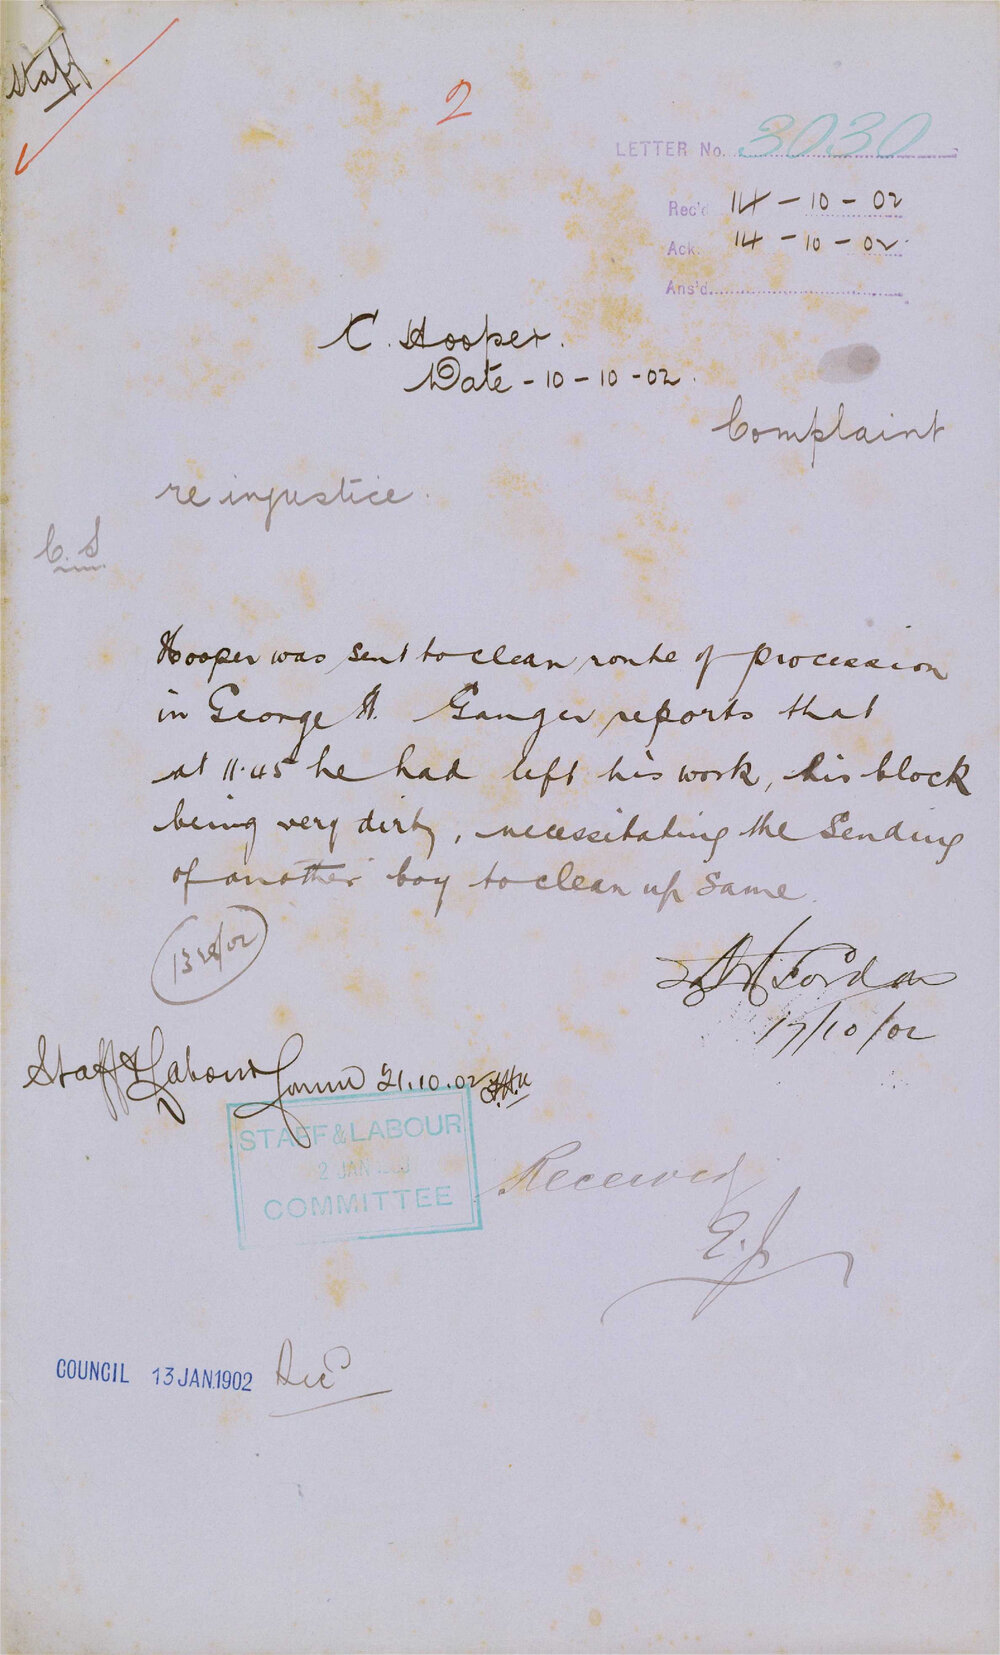 Staff
2
LETTER No. 3030
Rec'd 14-10-02
Ack. 14-10-02.
Ans'd
C. Hooper.
Date - 10-10-02.
Complaint
re injustice.
C.S
Hooper was sent to clean route of procession
in George St. Ganger reports that
at 11.45 he had left his work, his block
being very dirty, necessitating the sending
of another boy to clean up same.
17/10/02
Staff & Labour Comm 21.10.02
STAFF & LABOUR
2 JAN 1903
COMMITTEE
Received
E.J.
COUNCIL 13 JAN.1902 Rec